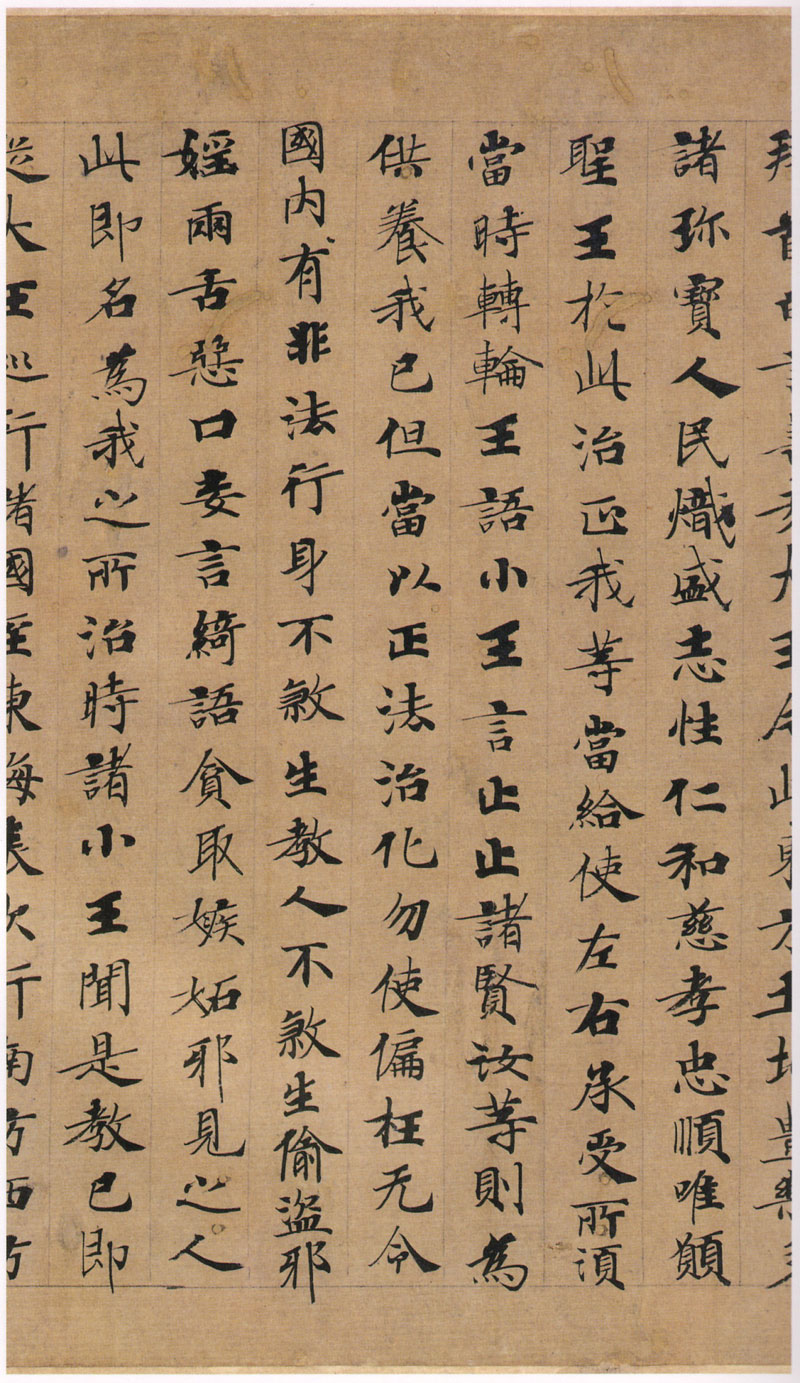 拜首白言善哉大王今此東方土地豊樂多
諸珎寶人民熾盛志性仁和慈孝忠順唯願
聖王於此治正我等當給使左右承受所須
當時轉輪王語小王言止止諸賢汝等則為
供養我已但當以正法治化勿使偏枉无令
國内有非法行身不煞生教人不煞生偷盜邪
婬兩舌惡口妄言綺語貪取嫉妬邪見之人
此即名為我之所治時諸小王聞是教已即
從大王巡行諸國至東海表次行南方西方